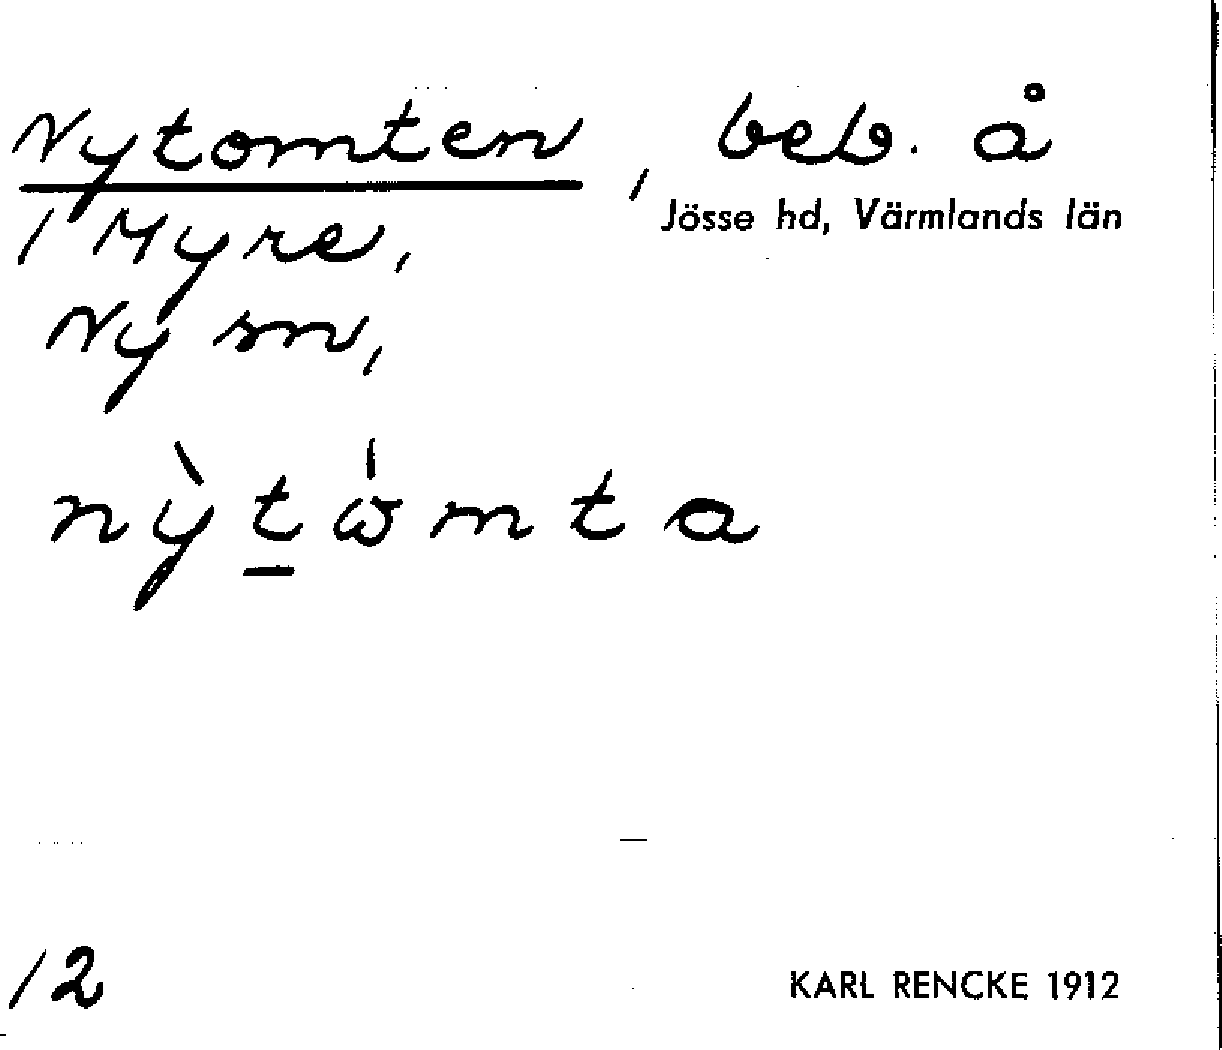 Nytomten, beb. å
Jösse hd, Värmlands län
1 Myre,
Ny sn,
nỳtω̍mta
12
KARL RENCKE 1912